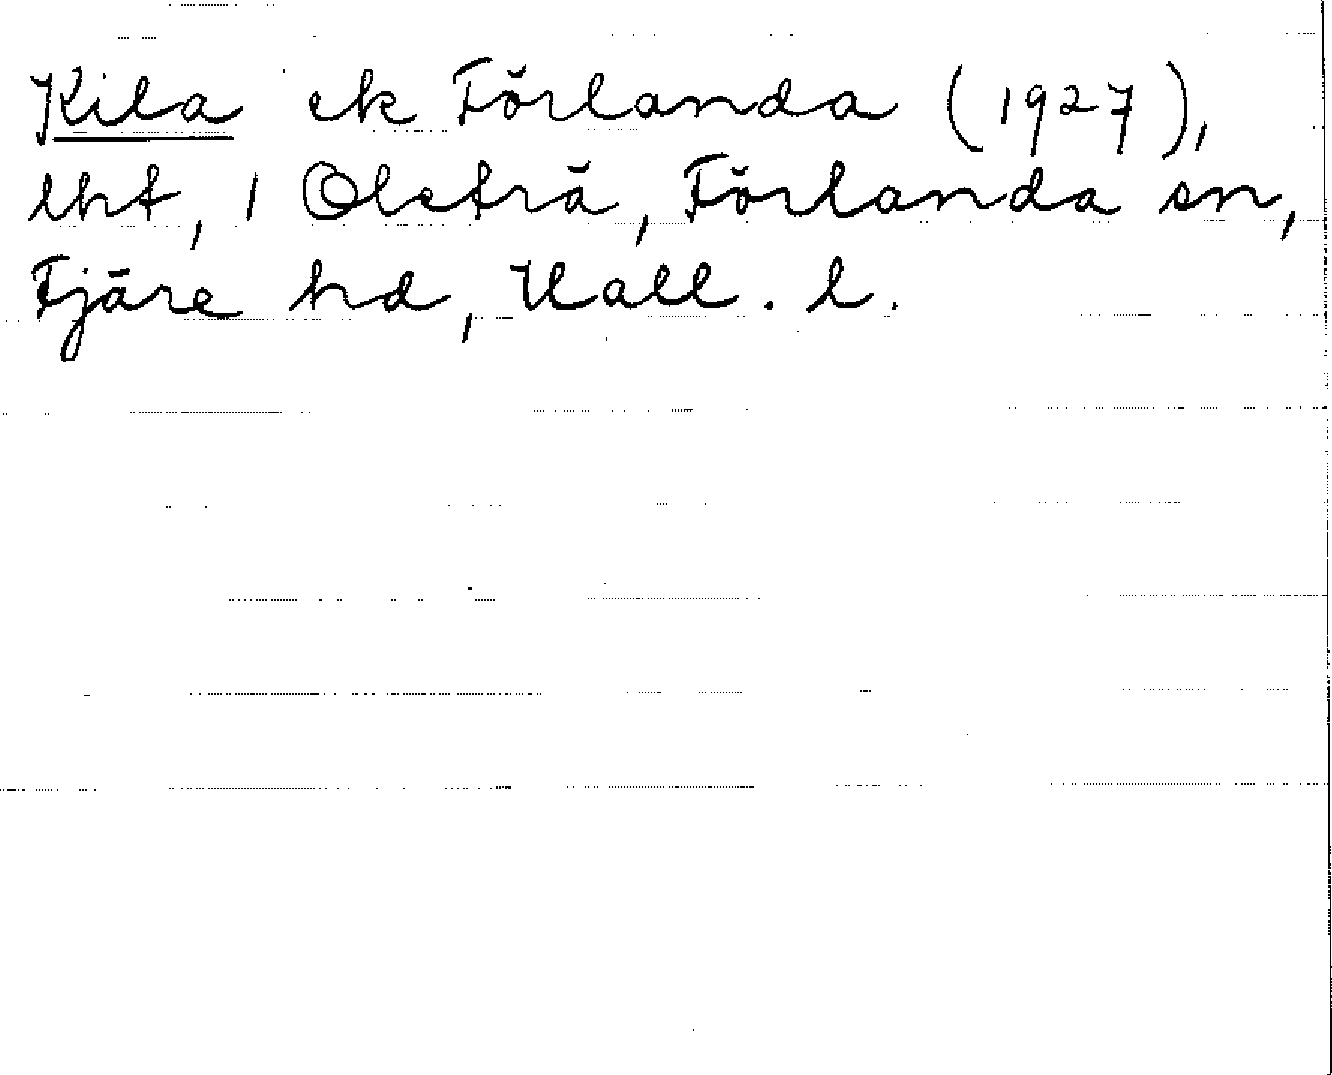 Kila ek Förlanda (1927),
lht, 1 Olsträ, Förlanda sn,
Fjäre hd, Hall. l.